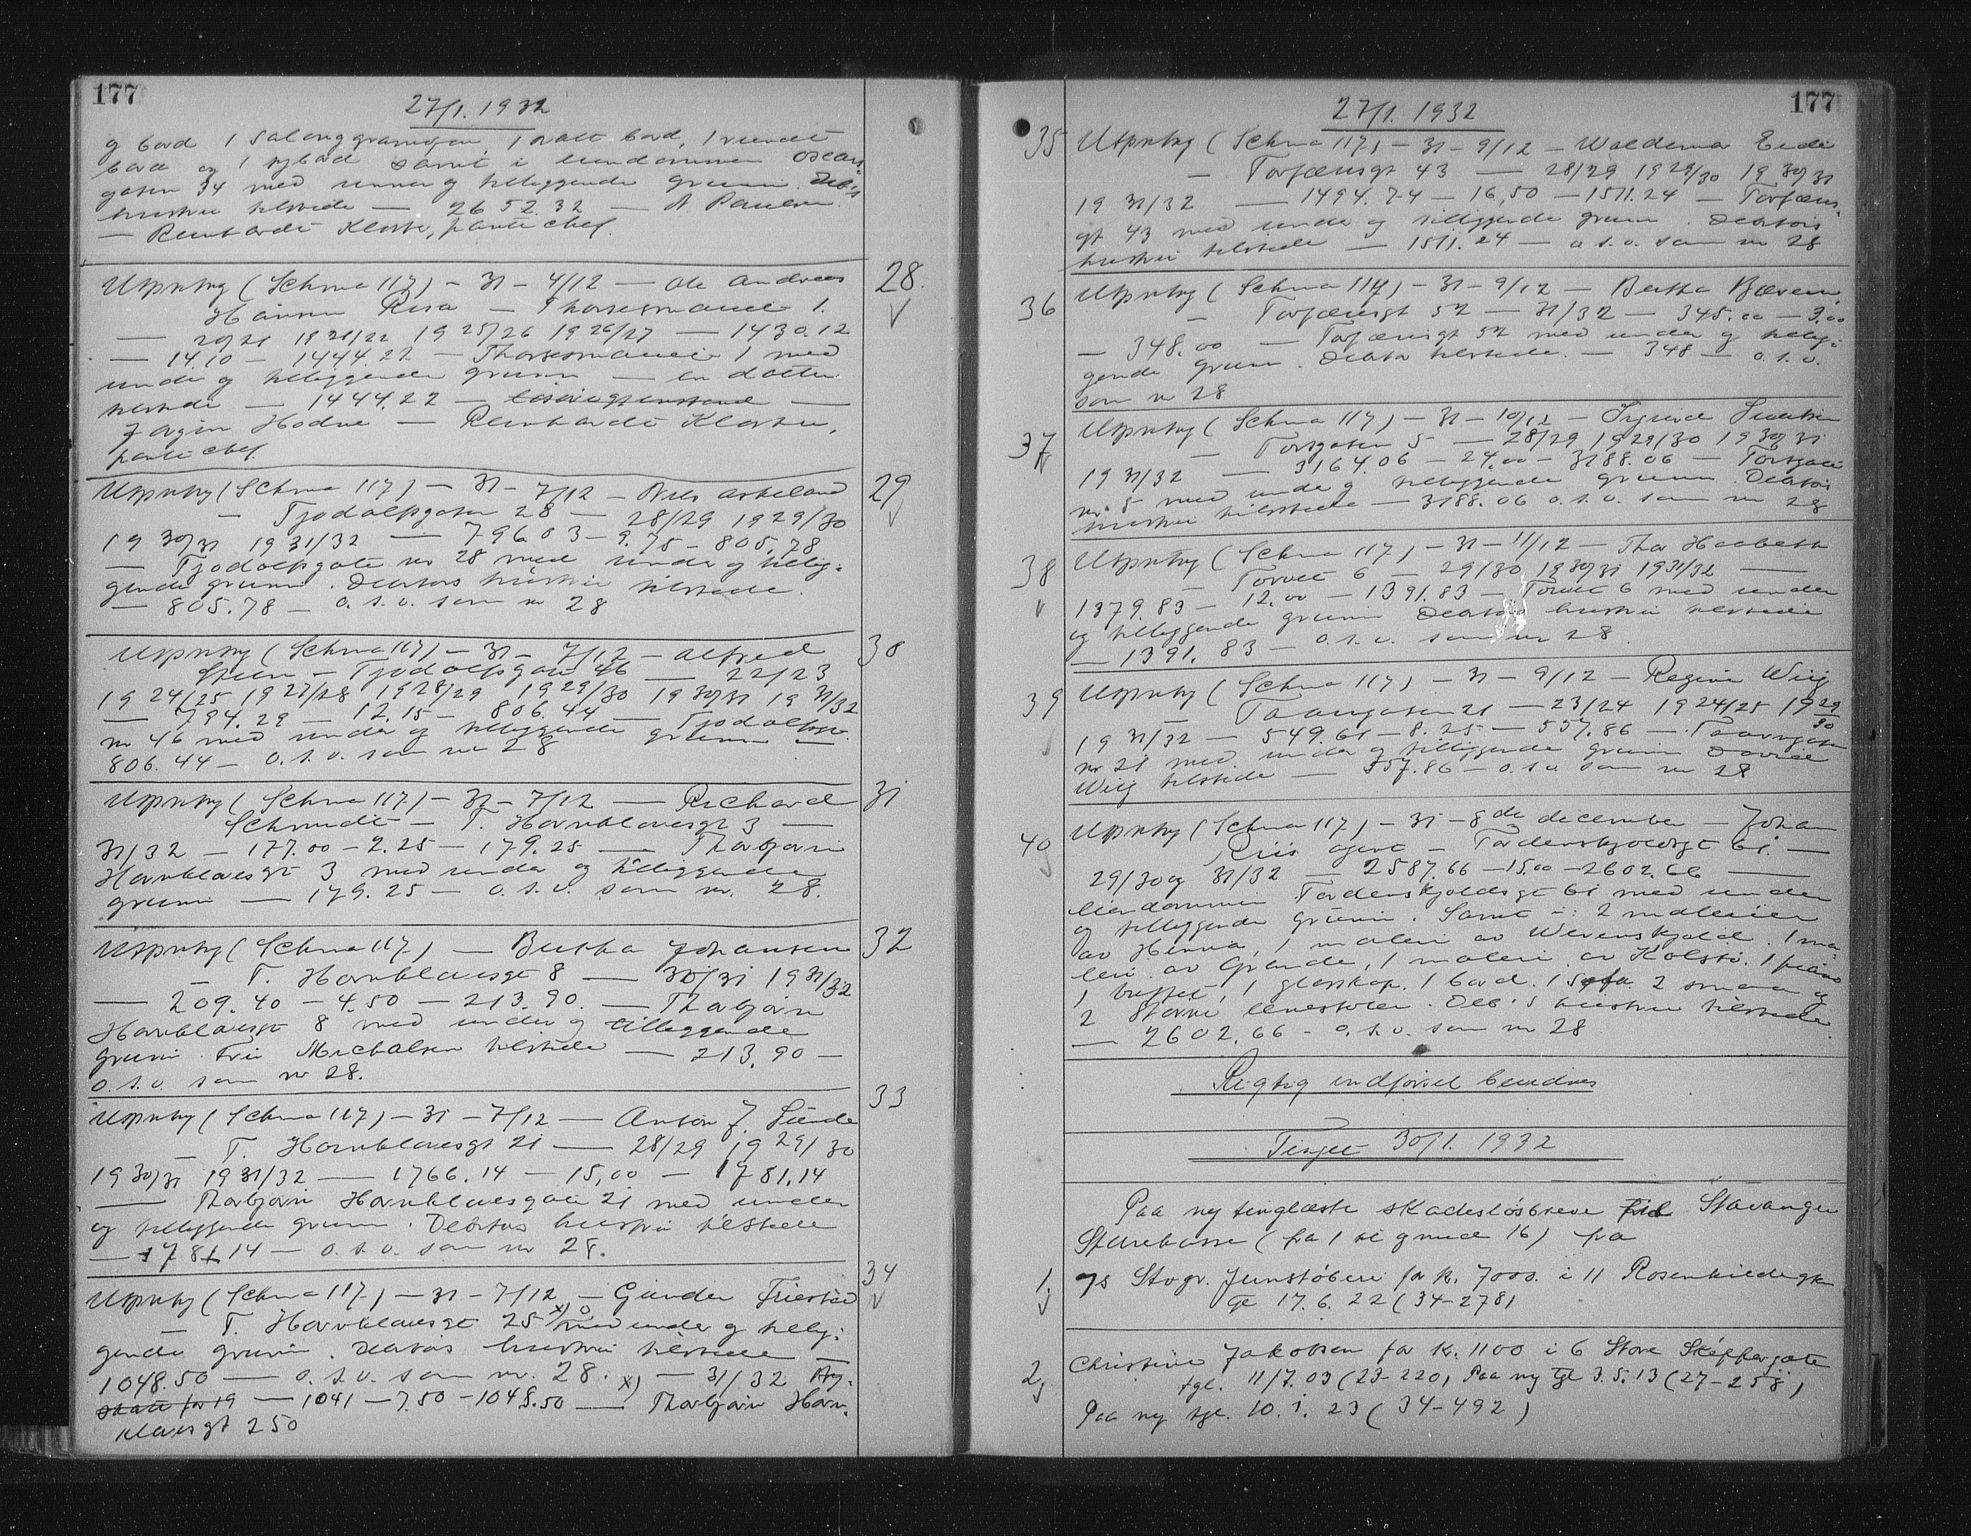 177
27/1. 1932
g bord 1 Salonggramofon, 1 ovalt bord, 1 rundt
bord og 1 sybord samt i eiendommen Oscars-
gaten 34 med under og tilliggende grunn. Deb's
hustru tilstede — 2652.32 — A. Paulsen
— Reinhardt Kloster, pantechef.
Utpntng (Schma 117) — 31 — 4/12 — Ole Andreas 28.
Hansen Resa — 1.
— 20/21 1921/22 1925/26 1926/27 — 1430.12
— 14.10 — 1444.22 — 1 med
under og tilliggende grunn — en datter
tilstede — 1444.22 —
Jørgen Hodne — Reinhardt Kloster,
pantechef.
Utpntng (Schma 117) — 31 — 7/12 — Nils Askeland 29
— Tjodolfsgaten 28 — 28/29 1929/30
1930/31 1931/32 — 796.03 — 9.75 — 805.78
— Tjodolfsgate nr 28 med under og tillig-
gende grunn. Debitors hustru tilstede.
— 805.78 — o.s.v. som nr 28
Utpntng (Schma 117) — 31 — 7/12 — Alfred 30
Steen — Tjodolfsgate 46 — 22/23
1924/25 1927/28 1928/29 1929/30 1930/31 1931/32
— 794.29 — 12.15 — 806.44 — Tjodolfsg.
nr 46 med under og tilliggende grunn —
806.44 — o.s.v. som nr 28
Utpntng (Schma 117) — 31 — 7/12 — Richard 31
Schmidt — T. Hornklovesgt 3 —
31/32 — 177.00 — 2.25 — 179.25 — Thorbjørn
Hornklovesgt 3 med under og tilliggende
grunn — 179.25 — o.s.v. som nr. 28.
Utpntng (Schma 117) — Bertha Johansen 32
— T. Hornklovesgt 8 — 30/31 1931/32
— 209.40 — 4.50 — 213.90. — Thorbjørn
Hornklovesgt 8 med under og tilliggende
grunn. Fru Michalsen tilstede — 213.90 —
o.s.v. som nr 28.
Utpntng (Schma 117) — 31 — 7/12 — Anton J. Lunde 33
— T. Hornklovesgt 21 — 28/29 1929/30
1930/31 1931/32 — 1766.14 — 15,00 — 1781.14
— Thorbjørn Hornklovesgate 21 med under
og tilliggende grunn. Debitors hustru tilstede
— 1781.14 — o.s.v. som nr 28.
Utpntng (Schma 117) — 31 — 7/12 — Gunder Friestad 34
— T. Hornklovesgt 25 x) med under og tillig-
gende grunn. Debitors hustru tilstede —
1048.50 — o.s.v. som nr. 28. x) — 31/32
skatt for 19 — 1041 — 7.50 — 1048.50 — Thorbjørn Horn-
klovesgt 250
177
27/1. 1932
35 Utpntng (Schma 117) — 31 — 9/12 — Waldemar Eide
— Torfæusgt 43 — 28/29 1929/30 1930/31
1931/32 — 1494.74 — 16,50 — 1511.24 — Torfæus-
gt 43 med under og tilliggende grunn. Debitors
hustru tilstede — 1511.24 — o.s.v. som nr 28
36 Utpntng (Schma 117) — 31 — 9/12 — Bertha
— Torfæusgt 52 — 31/32 — 345.00 — 3.00
— 348.00 — Torfæusgt 52 med under og tillig-
gende grunn. Debitor tilstede. — 348 — o.s.v.
som nr 28
37 Utpntng (Schma 117) — 31 — 10/12 — Sigurd
— Torvgaten 5 — 28/29 1929/30 1930/31
1931/32 — 3164.06 — 24.00 — 3188.06 — Torvgate
nr. 5 med under og tilliggende grunn. Debitors
hustru tilstede — 3188.06 o.s.v. som nr 28
38 Utpntng (Schma 117) — 31 — 11/12 — Thor Haabeth
— Torvet 6 — 29/30 1930/31 1931/32 —
1379.83 — 12.00 — 1391.83 — Torvet 6 med under
og tilliggende grunn Debitors hustru tilstede
— 1391.83 — o.s.v. som nr 28.
39 Utpntng (Schma 117) — 31 — 9/12 — Regine Wiig
— Taarngaten 21 — 23/24 1924/25 1929/30
1931/32 — 549.61 — 8.25 — 557.86 — Taarngaten
nr 21 med under og tilliggende grunn David
Wiig tilstede — 557.86 — o.s.v. som nr 28
40 Utpntng (Schma 117) — 31 — 8de december — Johan
Riis — Tordenskjoldsgt 61. —
29/30 og 31/32 — 2587.66 — 15.00 — 2602.66 —
Eiendommen Tordenskjoldsgt 61 med under
og tilliggende grunn. Samt i: 2 malerier
av Hinna, 1 maleri av Werenskjold. 1 ma-
leri av Grande, 1 maleri av Holst. 1 piano
1 buffet, 1 glasskap. 1 bord. 1 sofa 2 smaa og
2 større lenestoler. Deb's hustru tilstede
— 2602.66 — o.s.v. som nr 28
Rigtig indførsel bevidnes
Tinget 30/1. 1932
Paa ny tinglæste skadesløsbreve til Stavanger
Sparekasse (fra 1 til og med 16) fra
1. 7s Stogr. Jernstøberi for kr. 7000. i 11 Rosenkildegaten
tgl 17.6.22 (34-278)
2. Christine Jakobsen for kr. 1100 i 6 Store Skippergate
tgl. 11/7.03 (23-220) Paa ny tgl 3.5.13 (27-258)
Paa ny tgl. 10.1.23 (34-492)